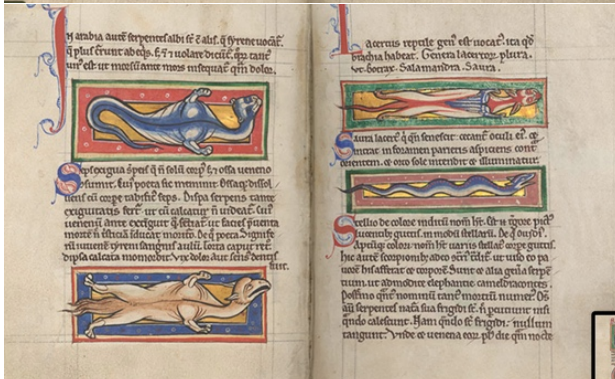 In arabia autē serpentes albi st̄ c̄ alis. q̄ syrene uocāt̄.
q̄ plus c̄runt ab eqs. s; ⁊ uolare dicūt̄. qr̄ tantū
uir̄ est ut morsū ante mors insequat̄ q̄m dolor.
Seps exigua s̄pens q̄ n̄ solū corp̄ s; ⁊ ossa ueneno
ɔsumit. Cui poeta sic meminit. Ossaq; dissol
uens cū corpe tabific̄ seps. Dipsa serpens tante
exiguitatis fert̄ ut cū calcat̄ n̄ uideat̄. Cui
uenenū ante extiguit q̄ sentiat̄ ut facies p̄uenta
morte n̄ tristiciā morituro. De q̄ poeta. Signife
rū iuuenē tyreni sanguis aulū. Torta caput ret̄
dipsa calcata momordit. Vix dolor aut sens̄ dentis
fuit.
Lacertus reptile gen̄ est uocat̄. ita qd̄
brachia habeat. Genera lacertor̄ plura.
vt botrax. Salamandra. Saura.
Saura lacert̄ q̄ q̄n senescit. cecant̄ oculi eī. ⁊
intrat in foramen parietis aspiciens cont̄
orientem. ⁊ orto sole intendit ⁊ illuminatur.
Stellio de colore inditū nom̄ ht̄. Est n̄ tergore pict̄
lucentib; guttis in modū stellarū. De q̄ ouidī.
Aptūq; colori nom̄ ht̄ uariis stellat̄ corpe guttis.
Hic autē scorpionib; adeo ɔtrarī tdit̄. ut uiso eo pa
uor his afferat̄ ⁊ torpor. Sunt ⁊ alia gen̄a serpē
tium. ut admodite elephantie cameldracontes.
Postmo q̄nt̄ nominū tant̄ mortiū numer̄. Om̄s
aū serpentes nat̄a sua frigidi st̄. n̄ p̄cutiunt nisi
qn̄do calescunt. Nam qn̄do st̄ frigidi. nullum
tangunt. Vnde ⁊ uenena eor̄ pl̄ die q̄m nocte